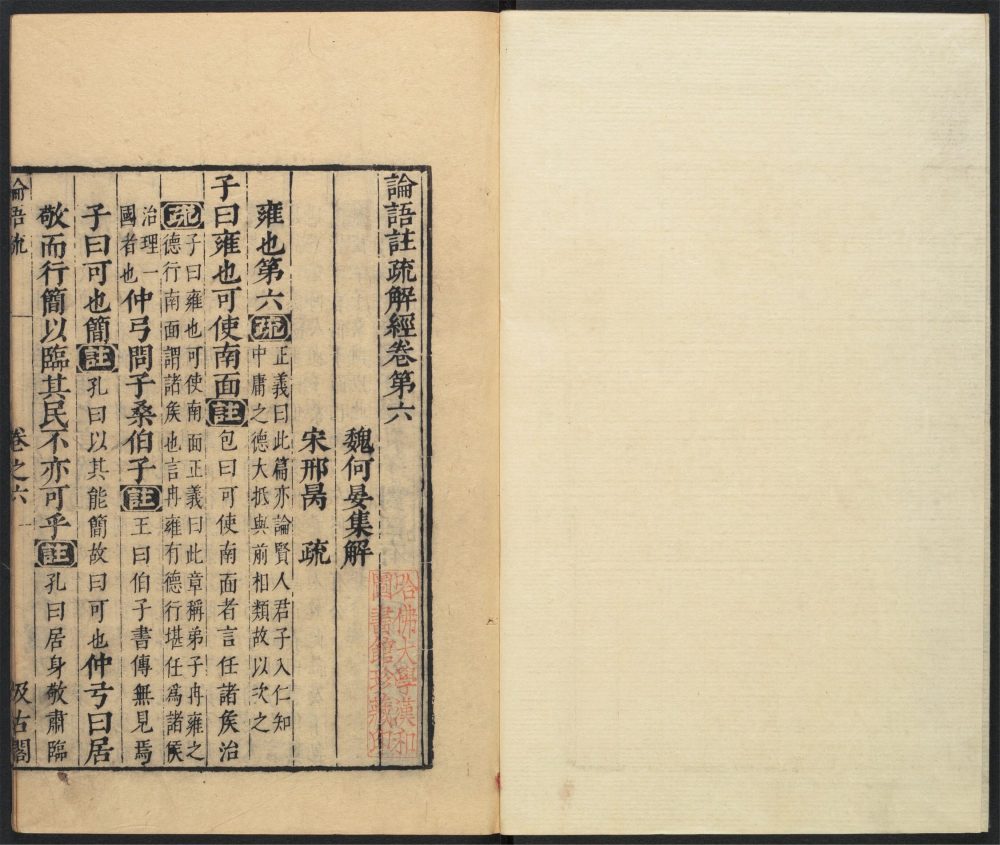 論語註疏解經卷第六
魏何晏集解
宋邢昺 疏
雍也第六疏正義曰此篇亦論賢人君子入仁知
中庸之德大抵與前相類故以次之
子曰雍也可使南面註包曰可使南面者言任諸矦治
疏子曰雍也可使南面正義曰此章稱弟子冉雍之
德行南面謂諸矦也言冉雍有德行堪任爲諸矦
治理一
國者也仲弓問子桑伯子註王曰伯子書傳無見焉
子曰可也簡註孔曰以其能簡故曰可也仲弓曰居
敬而行簡以臨其民不亦可乎註孔曰居身敬肅臨
論語疏 卷之六 汲古閣
哈佛大學漢和
圖書館珍藏印